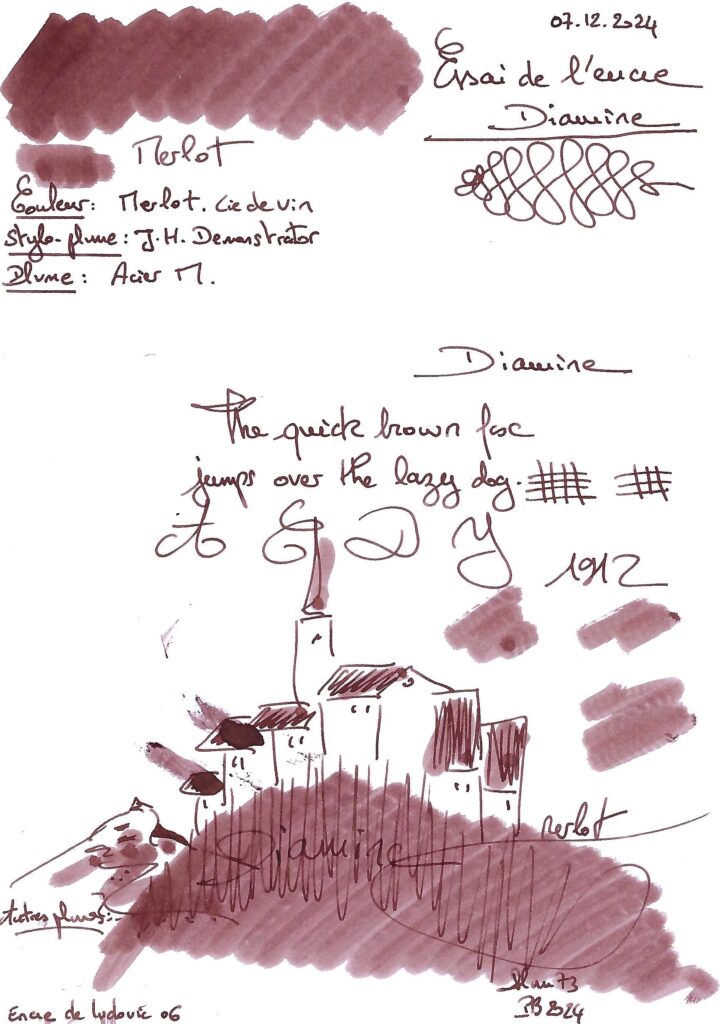 07.12.2024
Essai de l'encre
Diamine
Merlot
Couleur: Merlot. Lie de vin
Stylo-plume: J.H. Demonstrator
Plume: Acier M.
Diamine
The quick brown fox
jumps over the lazy dog.
A E D Y
1912
Merlot
Diamine
Autres plumes:
PB 2024
Encre de Ludovic 06